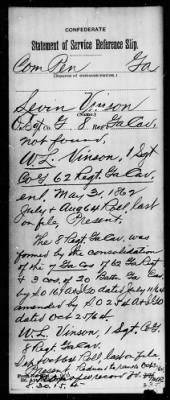 CONFEDERATE
Statement of Service Reference Slip.
Com Pen Ga
(Source of communication.)
Levin Vinson
(Name.)
Co. G. 8 Reg. Ga Cav.
not found.
W.L. Vinson, 1 Sgt
Co G 62 Regt. Ga Cav.
enl. May 3, 1862
July & Aug 64 Roll, last
on file, Present.
The 8 Regt Ga Cav. was
formed by the consolidation
of the 7 Cos of 62 Ga Regt
& 3 cos, of 20 Battn Ga Cav.
by S.O. 161 A & I G O dated July 11/64
amended by S O
dated Oct 27 64.
W.L. Vinson, 1 Sgt, Co G,
8 Regt. Ga Cav.
Roll, last on file,
Present
record
5.20.15.